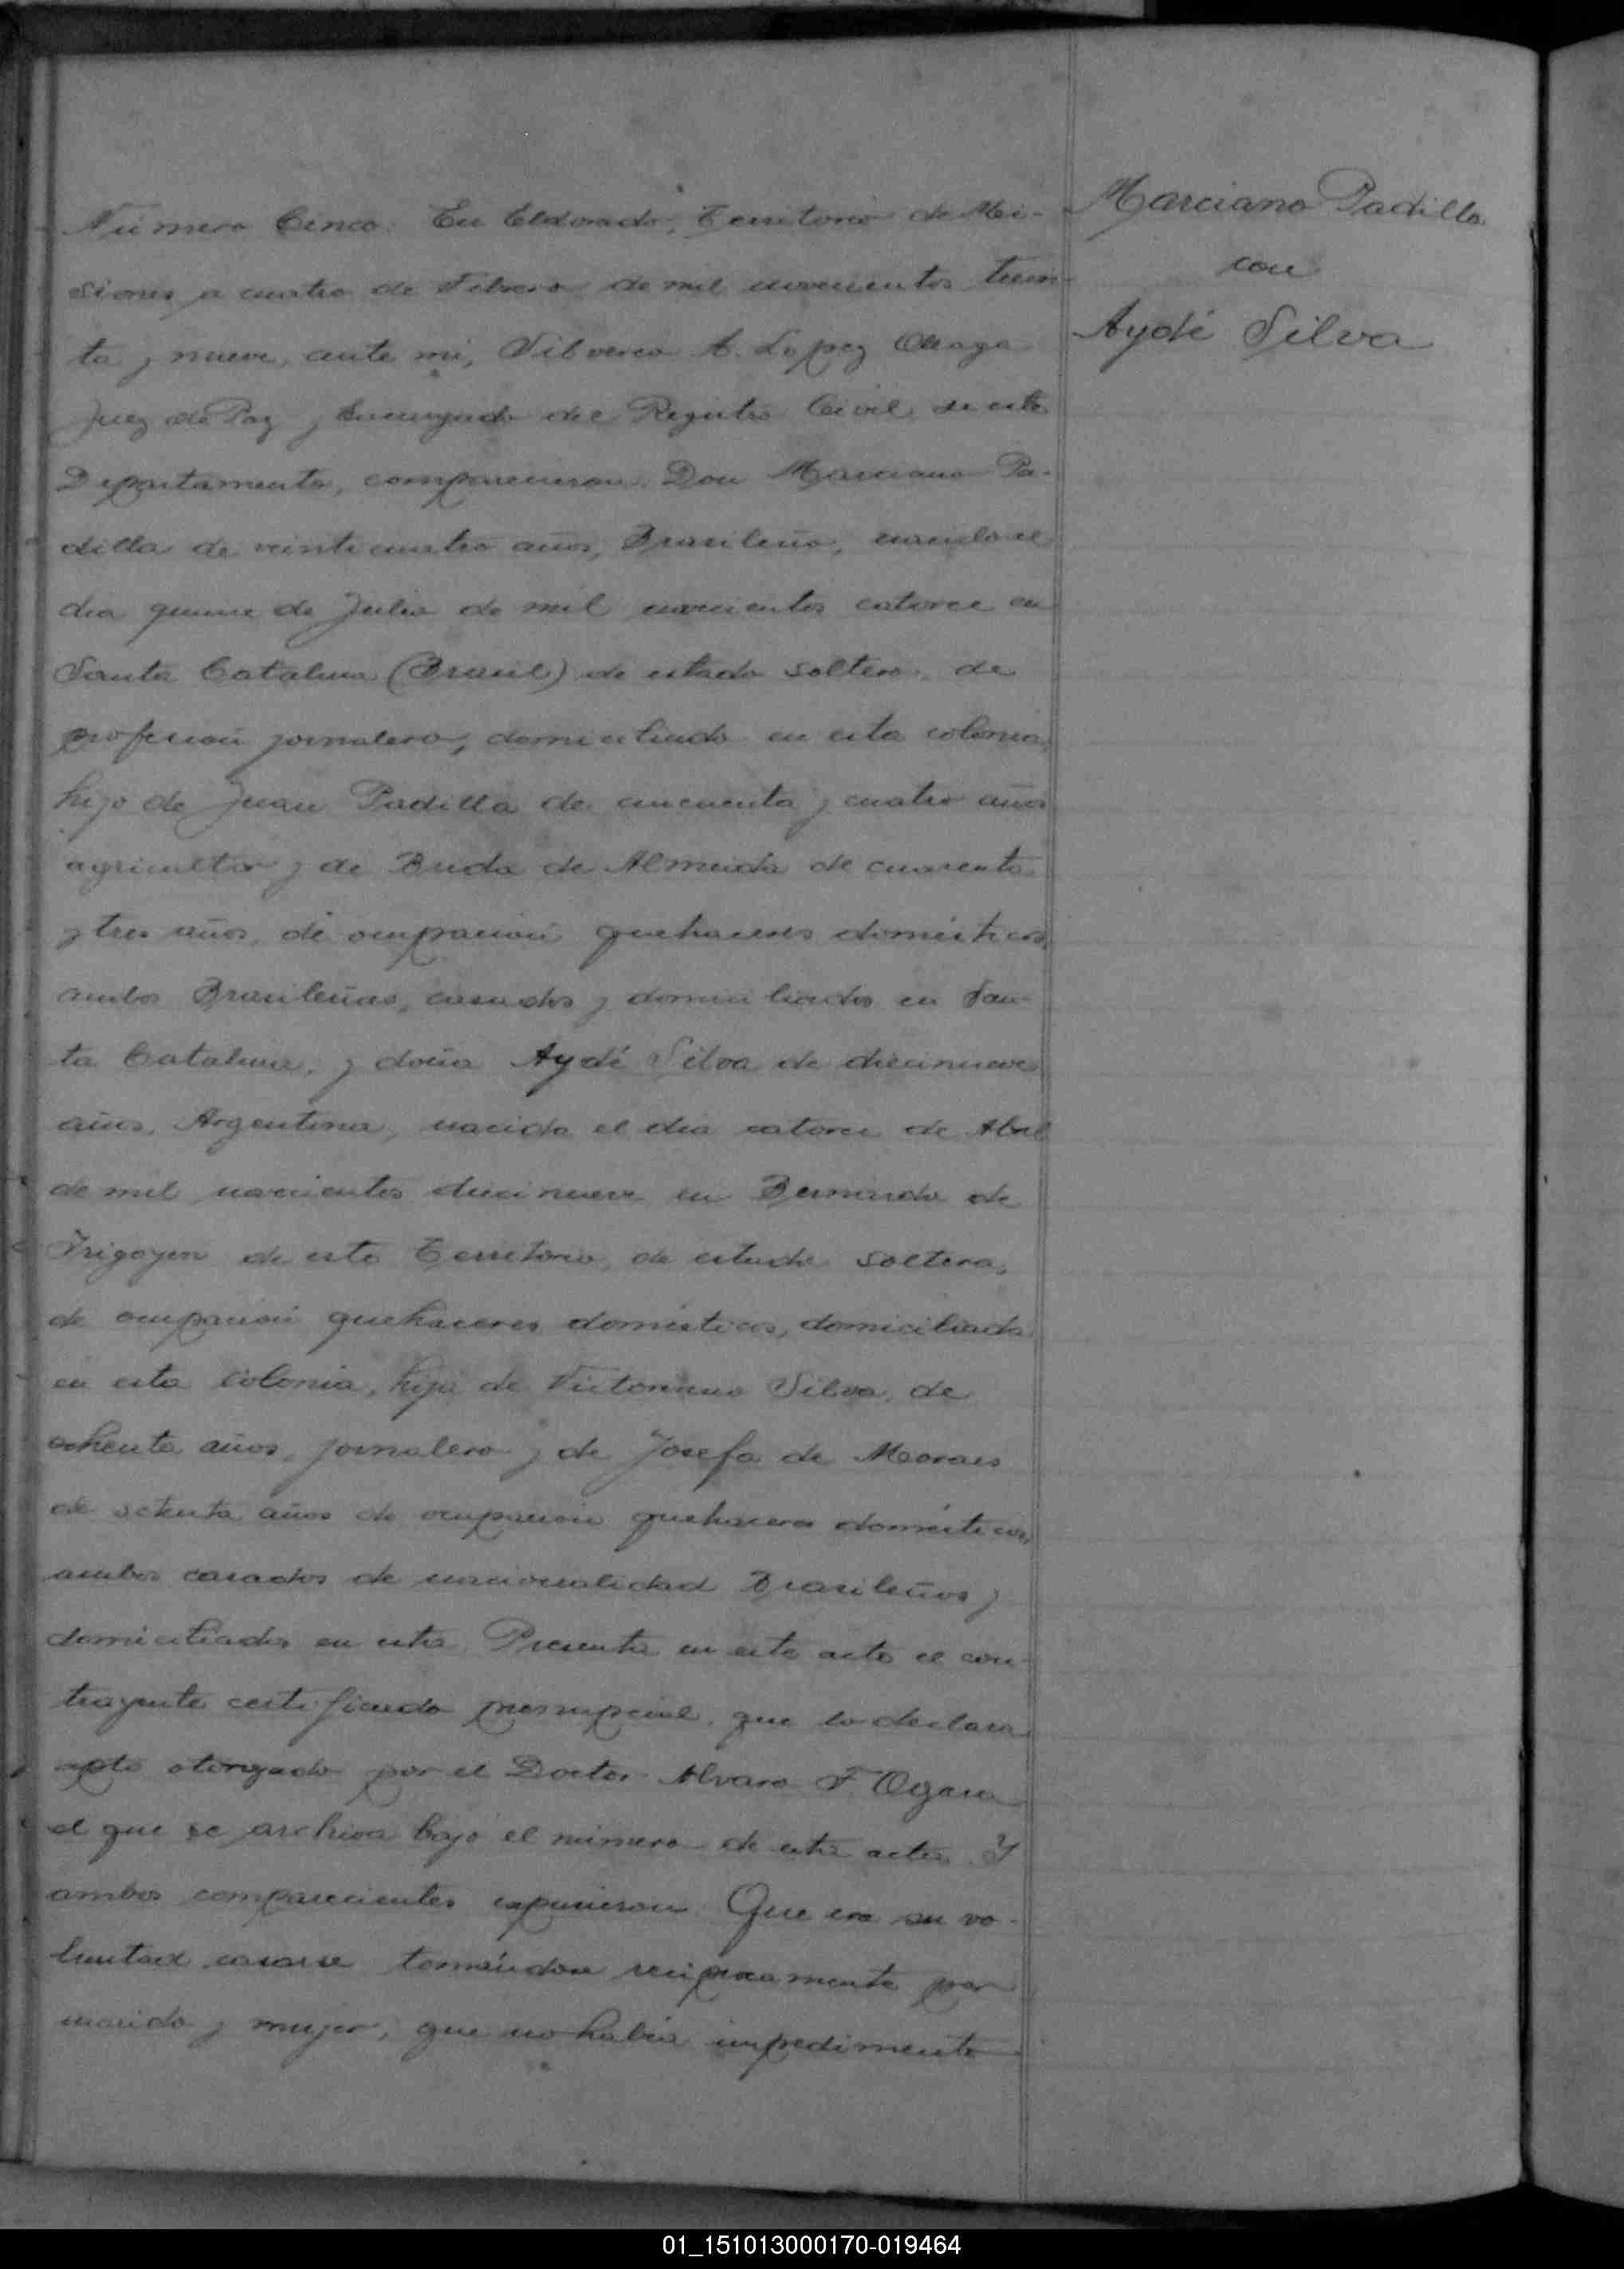 Número Cinco. En Eldorado, Territorio de Mi-
siones a cuatro de Febrero de mil novecientos trein-
ta y nueve, ante mi, Silverio A. Lopez
Juez de Paz y Encargado del Registro Civil de este
Departamento, comparecieron: Don Marciano Pa-
dilla de veinticuatro años, Brasileño, nacido el
dia quince de Julio de mil novecientos catorce en
Santa Catalina (Brasil) de estado soltero, de
profesión jornalero, domiciliado en esta colonia,
hijo de Juan Padilla de cincuenta y cuatro años
agricultor y de de Almeida de cuarenta
y tres años, de ocupación quehaceres domésticos,
ambos Brasileños, casados y domiciliados en San-
ta Catalina, y doña Aydé Silva de diecinueve
años, Argentina, nacida el dia catorce de Abril
de mil novecientos diecinueve en Bernardo de
Irigoyen de este Territorio, de estado soltera,
de ocupación quehaceres domésticos, domiciliada
en esta colonia, hija de Victoriano Silva, de
ochenta años, jornalero y de Josefa de Moraes
de setenta años de ocupación quehaceres domésticos,
ambos casados de nacionalidad Brasileños y
domiciliados en esta. Presenta en este acto el con-
trayente certificado prenupcial, que lo declara
apto otorgado por el Doctor Alvaro F.
el que se archiva bajo el número de esta acta. Y
ambos comparecientes expusieron: Que era su vo-
luntad casarse tomándose reciprocamente por
marido y mujer, que no había impedimento
Marciano Padilla
con
Aydé Silva
01_151013000170-019464